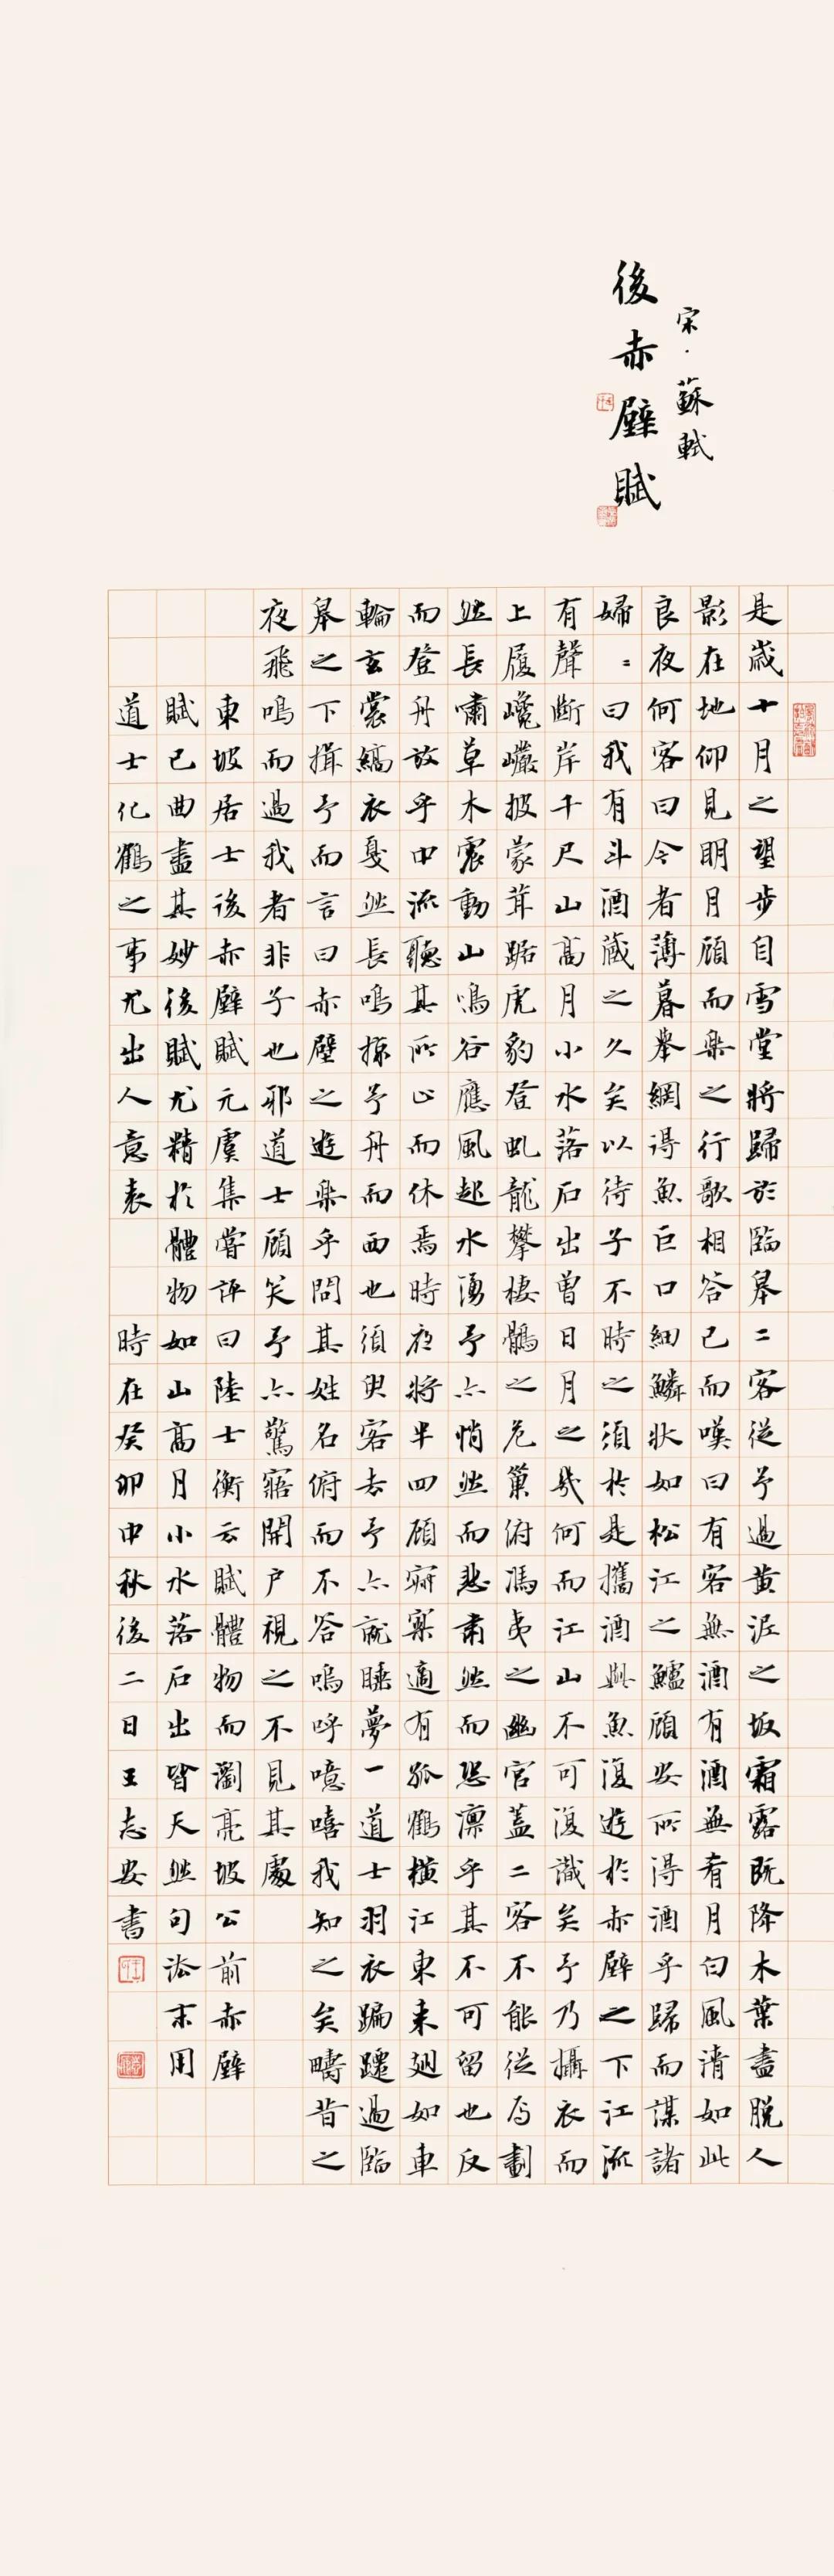 宋·蘇軾
後赤壁賦
是歲十月之望步自雪堂將歸於臨皋二客從予過黃泥之坂霜露既降木葉盡脫人
影在地仰見明月顧而樂之行歌相答已而嘆曰有客無酒有酒無肴月白風清如此
良夜何客曰今者薄暮舉網得魚巨口細鱗狀如松江之鱸顧安所得酒乎歸而謀諸
婦〻曰我有斗酒藏之久矣以待子不時之須於是攜酒與魚復遊於赤壁之下江流
有聲斷岸千尺山高月小水落石出曾日月之幾何而江山不可復識矣予乃攝衣而
上履巉巖披蒙茸踞虎豹登虬龍攀棲鶻之危巢俯馮夷之幽宮蓋二客不能從焉劃
然長嘯草木震動山鳴谷應風起水湧予亦悄然而悲肅然而恐凜乎其不可留也反
而登舟放乎中流聽其所止而休焉時夜將半四顧寂寥適有孤鶴橫江東來翅如車
輪玄裳縞衣戛然長鳴掠予舟而西也須臾客去予亦就睡夢一道士羽衣蹁躚過臨
皋之下揖予而言曰赤壁之遊樂乎問其姓名俯而不答嗚呼噫嘻我知之矣疇昔之
夜飛鳴而過我者非子也邪道士顧笑予亦驚寤開戶視之不見其處
東坡居士後赤壁賦元虞集嘗評曰陸士衡云賦體物而瀏亮坡公前赤壁
賦已曲盡其妙後賦尤精於體物如山高月小水落石出皆天然句法末用
道士化鶴之事尤出人意表 時在癸卯中秋後二日王志安書